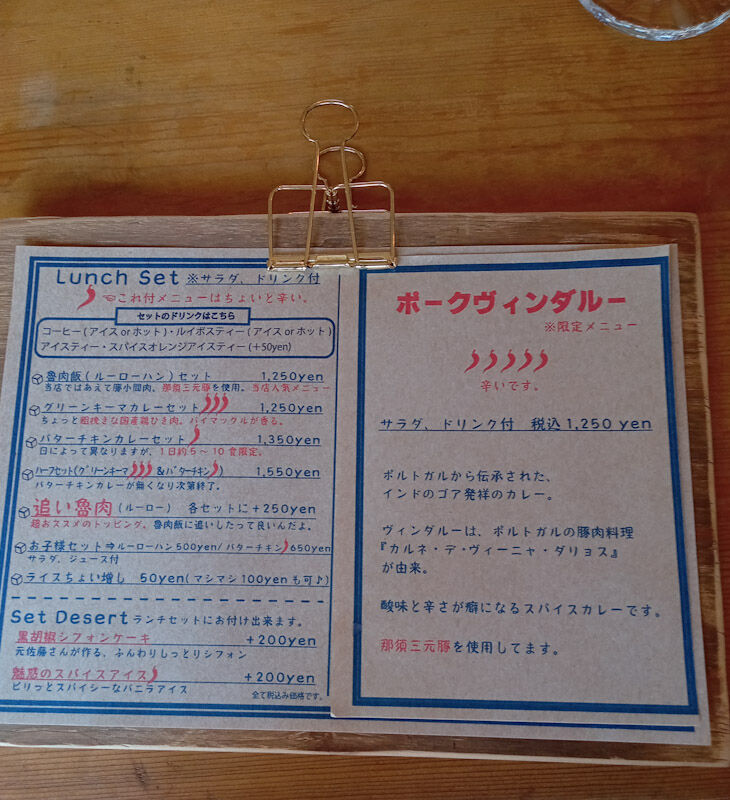 Lunch Set ※サラダ、ドリンク付
☜これ付メニューはちょいと辛い。
セットのドリンクはこちら
コーヒー(アイス or ホット)・ルイボスティー(アイス or ホット)
アイスティー・スパイスオレンジアイスティー(+50yen)
魯肉飯(ルーローハン)セット 1,250yen
当店ではあえて豚小間肉。那須三元豚を使用。当店人気メニュー
グリーンキーマカレーセット 1,250yen
ちょっと粗挽きな国産鶏ひき肉。バイマックルが香る。
バターチキンカレーセット 1,350yen
日によって異なりますが、1日約5〜10食限定。
ハーフセット(グリーンキーマ &バターチキン) 1,550yen
バターチキンカレーが無くなり次第終了。
追い魯肉(ルーロー) 各セットに+250yen
超おススメのトッピング。魯肉飯に追いしたって良いんだよ。
お子様セット⇒ルーローハン500yen/バターチキン 650yen
サラダ、ジュース付
ライスちょい増し 50yen(マシマシ100yenも可♪)
Set Desert ランチセットにお付け出来ます。
黒胡椒シフォンケーキ +200yen
元佐藤さんが作る、ふんわりしっとりシフォン
魅惑のスパイスアイス +200yen
ピリっとスパイシーなバニラアイス
全て税込み価格です。
ポークヴィンダルー
※限定メニュー
辛いです。
サラダ、ドリンク付 税込1,250yen
ポルトガルから伝承された、
インドのゴア発祥のカレー。
ヴィンダルーは、ポルトガルの豚肉料理
『カルネ・デ・ヴィーニャ・ダリョス』
が由来。
酸味と辛さが癖になるスパイスカレーです。
那須三元豚を使用してます。